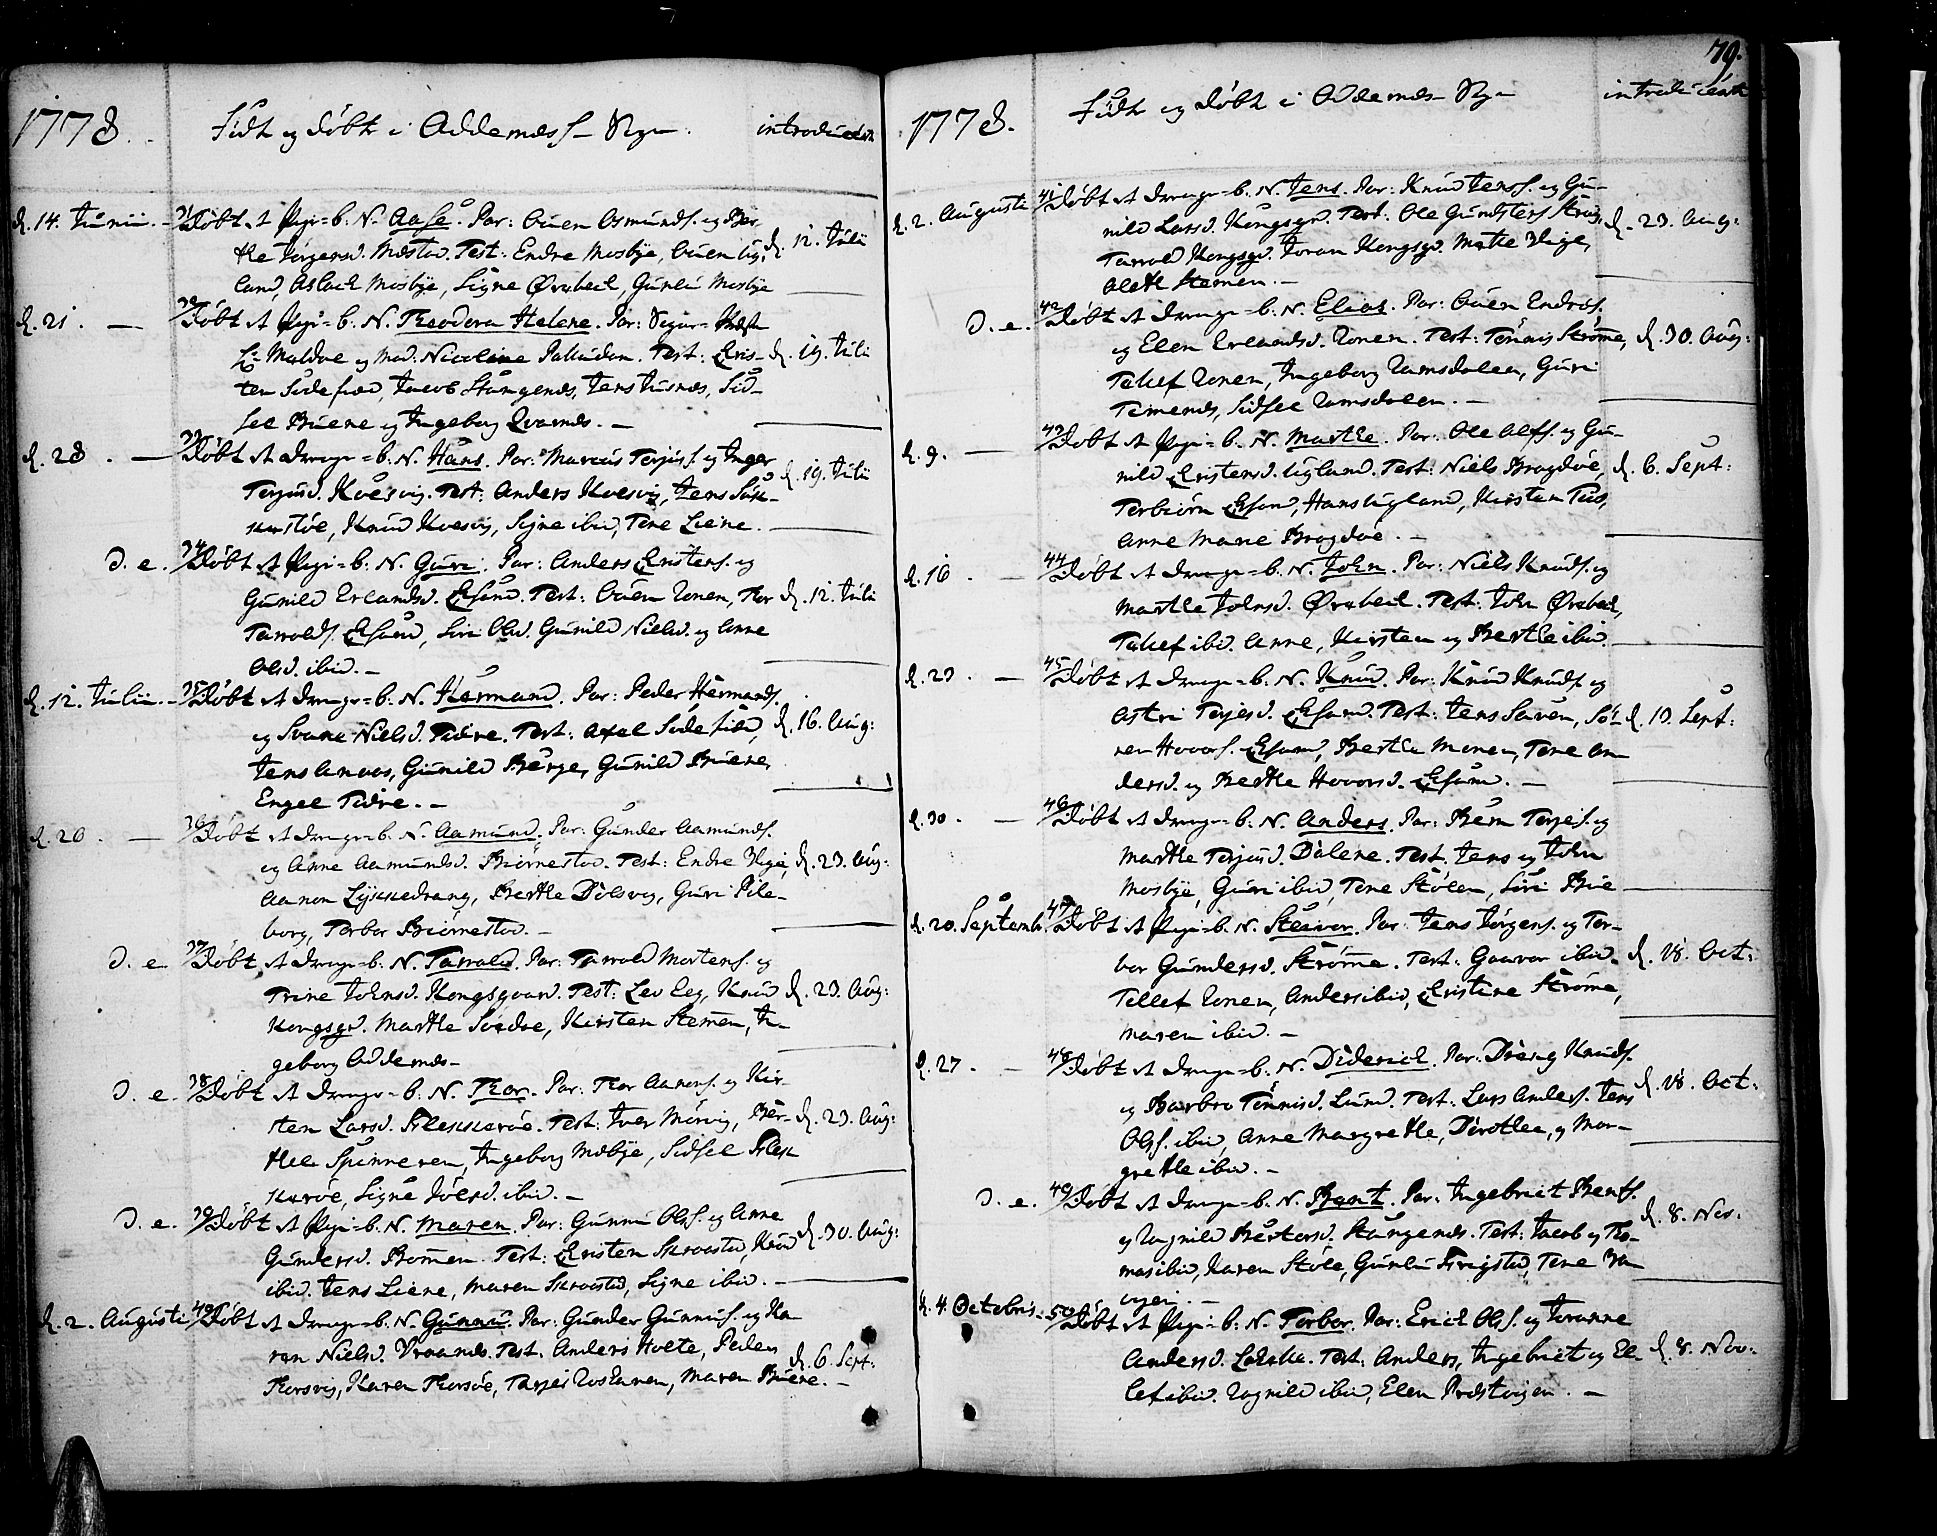 1778.
Födt og døbt i Oddernæss Sogn
introduceret
d. 14. Junii.
31 Døbt et Pige-b. N. Aase. Par: Ouen Osmunds. og Ber-
the Jørgensd. Mæstad. Test: Endre Mosbye, Ouen Ug-
land, Aslach Mosbye, Signe Ørebech, Gunlu Mosbye
d. 12. Julii
d. 21.
32 Døbt et Pige-b. N. Theodora Helene. Par: Sogne-Præst
Hr. Moldoe og Mad. Nicoline Palludan. Test: Chris-
ten Sødefied, Jacob Stangenes, Jens Jusnes, Sid-
sel Buene og Ingeborg Qvarnes.
d. 19. Julii
d. 28.
33 Døbt et Drenge-b. N. Hans. Par: Marcus Terjus. og Inger
Terjusd. Koesvig. Test: Anders Koesvig, Jens
Knud Koesvig, Signe ibid, Tone Liene.
d. 19. Julii
D. e.
34 Døbt et Pige-b. N. Guri. Par: Anders Christens. og
Gunild Erlandsd. Efand. Test: Ouen Ronen, Thor
Tarrolds. Efand, Siri Olsd. Gunild Nielsd. og Anne
Olsd. ibid.
d. 12. Julii
d. 12. Julii.
35 Døbt et Drenge-b. N. Hermand. Par: Peder Hermands.
og Svane Nielsd. Tidne. Test: Axel Sødefied,
Jens Anaas, Gunild Berge, Gunild Buene,
Engel Tidne.
d. 16. Aug:
d. 26.
36 Døbt et Drenge-b. N. Aamund. Par: Gunder Aamunds.
og Anne Aamundsd. Biørnestad. Test: Endre Vige,
Aanon Lykkedrang, Berthe Dolsvig, Guri Pile-
borg, Torbor Biørnestad.
d. 23. Aug:
D. e.
37 Døbt et Drenge-b. N. Tarrold. Par: Tarrold Mortens. og
Trine Johnsd. Kongsgaard. Test: Lev Eeg, Knud
Kongsgd. Marthe Sødoe, Kirsten Stemen, In-
geborg Oddernæs.
d. 23. Aug:
D. e.
38 Døbt et Drenge-b. N. Thor. Par: Thor Aanens. og Kir-
sten Larsd. Flekkerøe. Test: Iver Møvig, Ber-
thel Spinneren, Ingeborg Mebye, Sidsel Flek-
kerøe, Signe Joensd. ibid.
d. 23. Aug:
D. e.
39 Døbt et Pige-b. N. Maren. Par: Gunnu Ols. og Anne
Gundersd. Bommen. Test: Christen Skraastad, Knud
ibid. Jens Liene, Maren Skraastad, Signe ibid.
d. 30. Aug:
d. 2. Augusti
40 Døbt et Drenge-b. N. Gunnu. Par: Gunder Gunnus. og Ka-
ren Nielsd. Vraanes. Test: Anders Holte, Peder
Thorsvig, Karen Thorsøe, Terjei Toshaven, Maren Buene.
d. 6. Sept:
79.
1778.
Födt og døbt i Oddernæs Sogn
introduceret
d. 2. Augusti
41 Døbt et Drenge-b. N. Jens. Par: Knud Jens. og Gu-
nild Larsd. Kongsgrd. Test: Ole Gundsters
Tarrold Kongsgd. Joran Kongsgd. Mathe Vige,
Olethe Stemen.
d. 23. Aug:
D. e.
42 Døbt et Drenge-b. N. Elias. Par: Ouen Endres.
og Elen Erlandsd. Ronen. Test: Tønnis Strømme,
Tollef Ronen, Ingeborg Ramsdalen, Guri
Timenes, Sidsel Ramsdalen.
d. 30. Aug:
d. 9.
43 Døbt et Pige-b. N. Marthe. Par: Ole Olss. og Gu-
nild Christensd. Ugland. Test: Niels Bragdøe,
Torbiørn Efand, Hans Ugland, Kirsten Tus,
Anne Marie Bragdøe.
d. 6. Sept:
d. 16.
44 Døbt et Drenge-b. N. John. Par: Niels Knuds. og
Marthe Johnsd. Ørebech. Test: John Ørebech,
Tollef ibid. Anne, Kirsten og Berthe ibid.
d. 23.
45 Døbt et Drenge-b. N. Knud. Par: Knud Knuds. og
Astri Terjesd. Efand. Test: Jens Saven, Sø-
ren Hovors. Efand, Berthe Monen, Tone An-
dersd. og Berthe Hovorsd. Efand.
d. 13. Sept:
d. 30.
46 Døbt et Drenge-b. N. Anders. Par: Bern Terjes. og
Marthe Terjusd. Dalene. Test. Jens og John
Mosbye, Guri ibid, Tone Stølen, Siri Bue
d. 20. Septemb.
47 Døbt et Pige-b. N. Steinvor. Par: Jens Jørgens. og Tor-
bor Gundersd. Strømme. Test: Gaavor ibid.
Tellef Ronen, Anders ibid, Christine Strømme,
Maren ibid.
d. 18. Oct:
d. 27.
48 Døbt et Drenge-b. N. Diderich. Par: Dreng Knuds.
og Barbro Tønnisd. Lund. Test: Lars Anders. Jens
Ols. ibid, Anne Margrethe, Dorothea, og Mar-
grethe ibid.
d. 18. Oct:
D. e.
49 Døbt et Drenge-b. N. Bent. Par: Ingebriet Bents.
og Ragnild Bertersd. Stangenes. Test: Jacob og Tho-
mas ibid, Karen Støle, Gunlu Frigstad, Tone Ran-
vigen.
d. 8. Nov:
d. 4. Octobris.
50 Døbt et Pige-b. N. Torbor. Par: Erich Ols. og Joranne
Andersd. Test: Anders, Ingebriet og El-
lef ibid. Ragnild ibid, Elen Præstvigen.
d. 8. Nov: